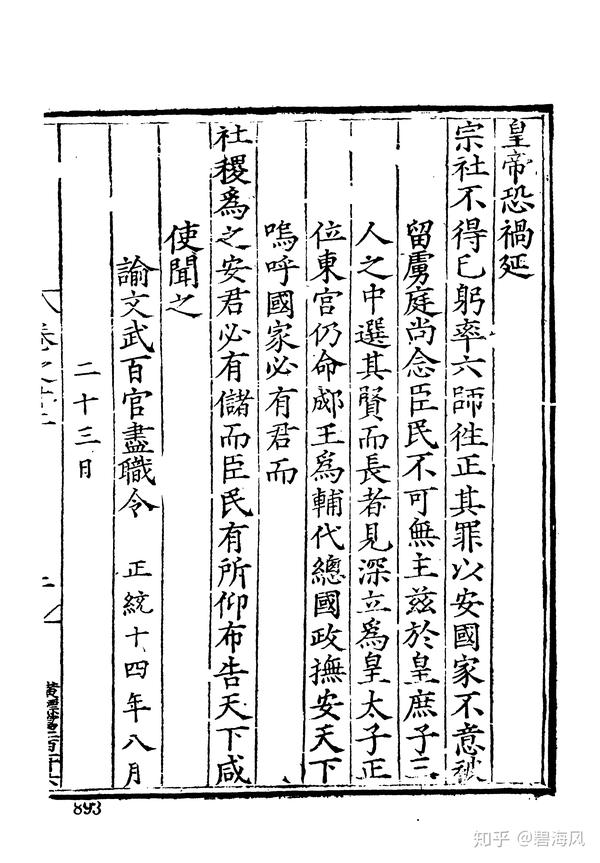 皇帝恐禍延
宗社不得已躬率六師徃正其罪以安國家不意被
留虜庭尚念臣民不可無主兹於皇庶子三
人之中選其賢而長者見深立爲皇太子正
位東宮仍命郕王爲輔代總國政撫安天下
嗚呼國家必有君而
社稷爲之安君必有儲而臣民有所仰布告天下咸
使聞之
諭文武百官盡職令 正統十四年八月
二十三日
893
知乎 @碧海风